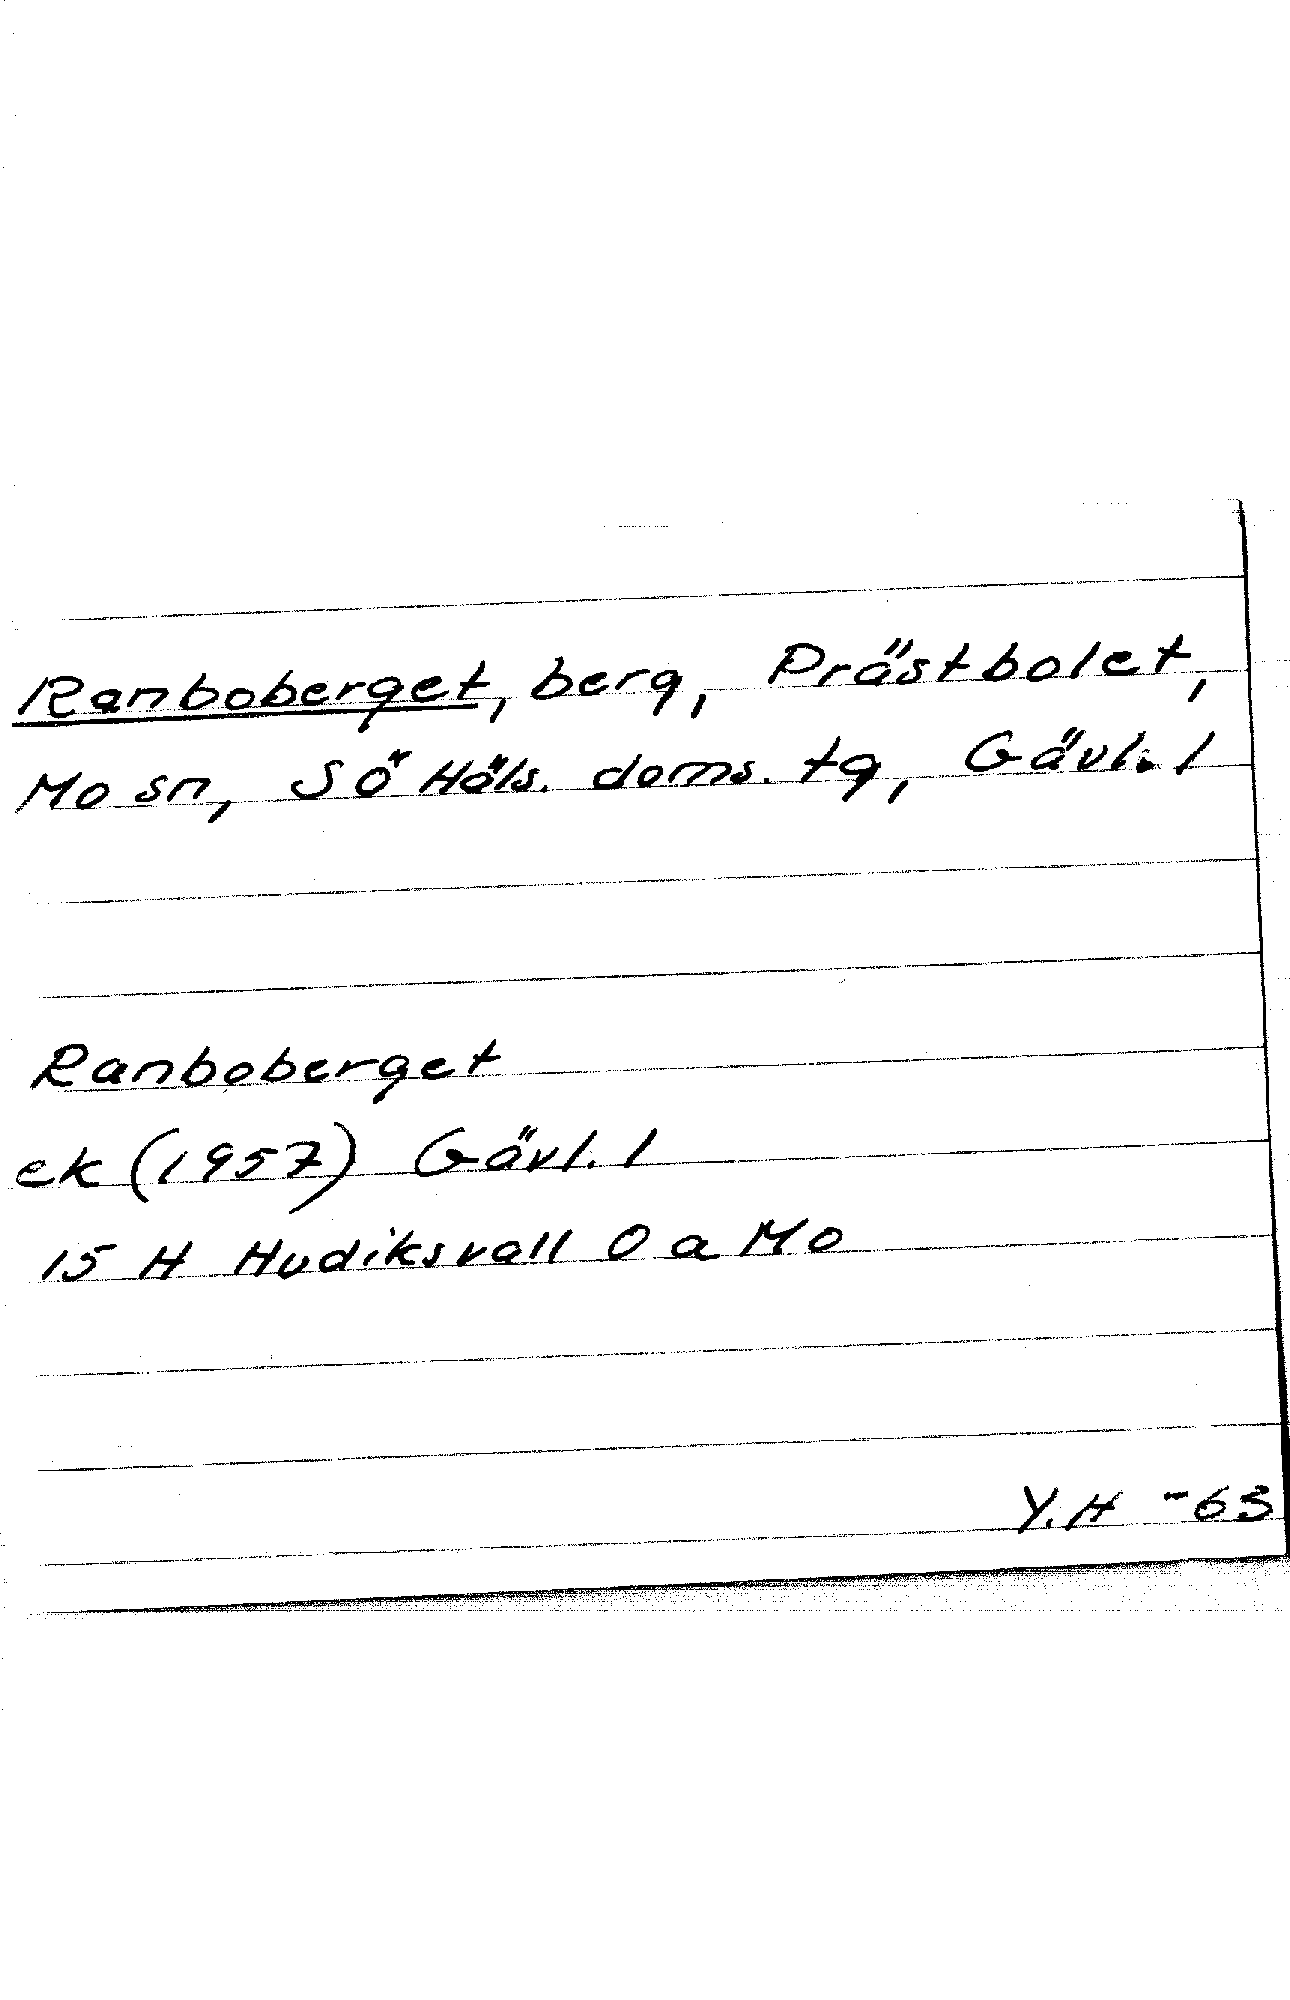 Ranboberget, berg, Prästbolet,
Mo sn, Sö Häls. doms. tg, Gävl. l
Ranboberget
ek (1957) Gävl. l
15 H Hudiksvall O a Mo
Y.H -63